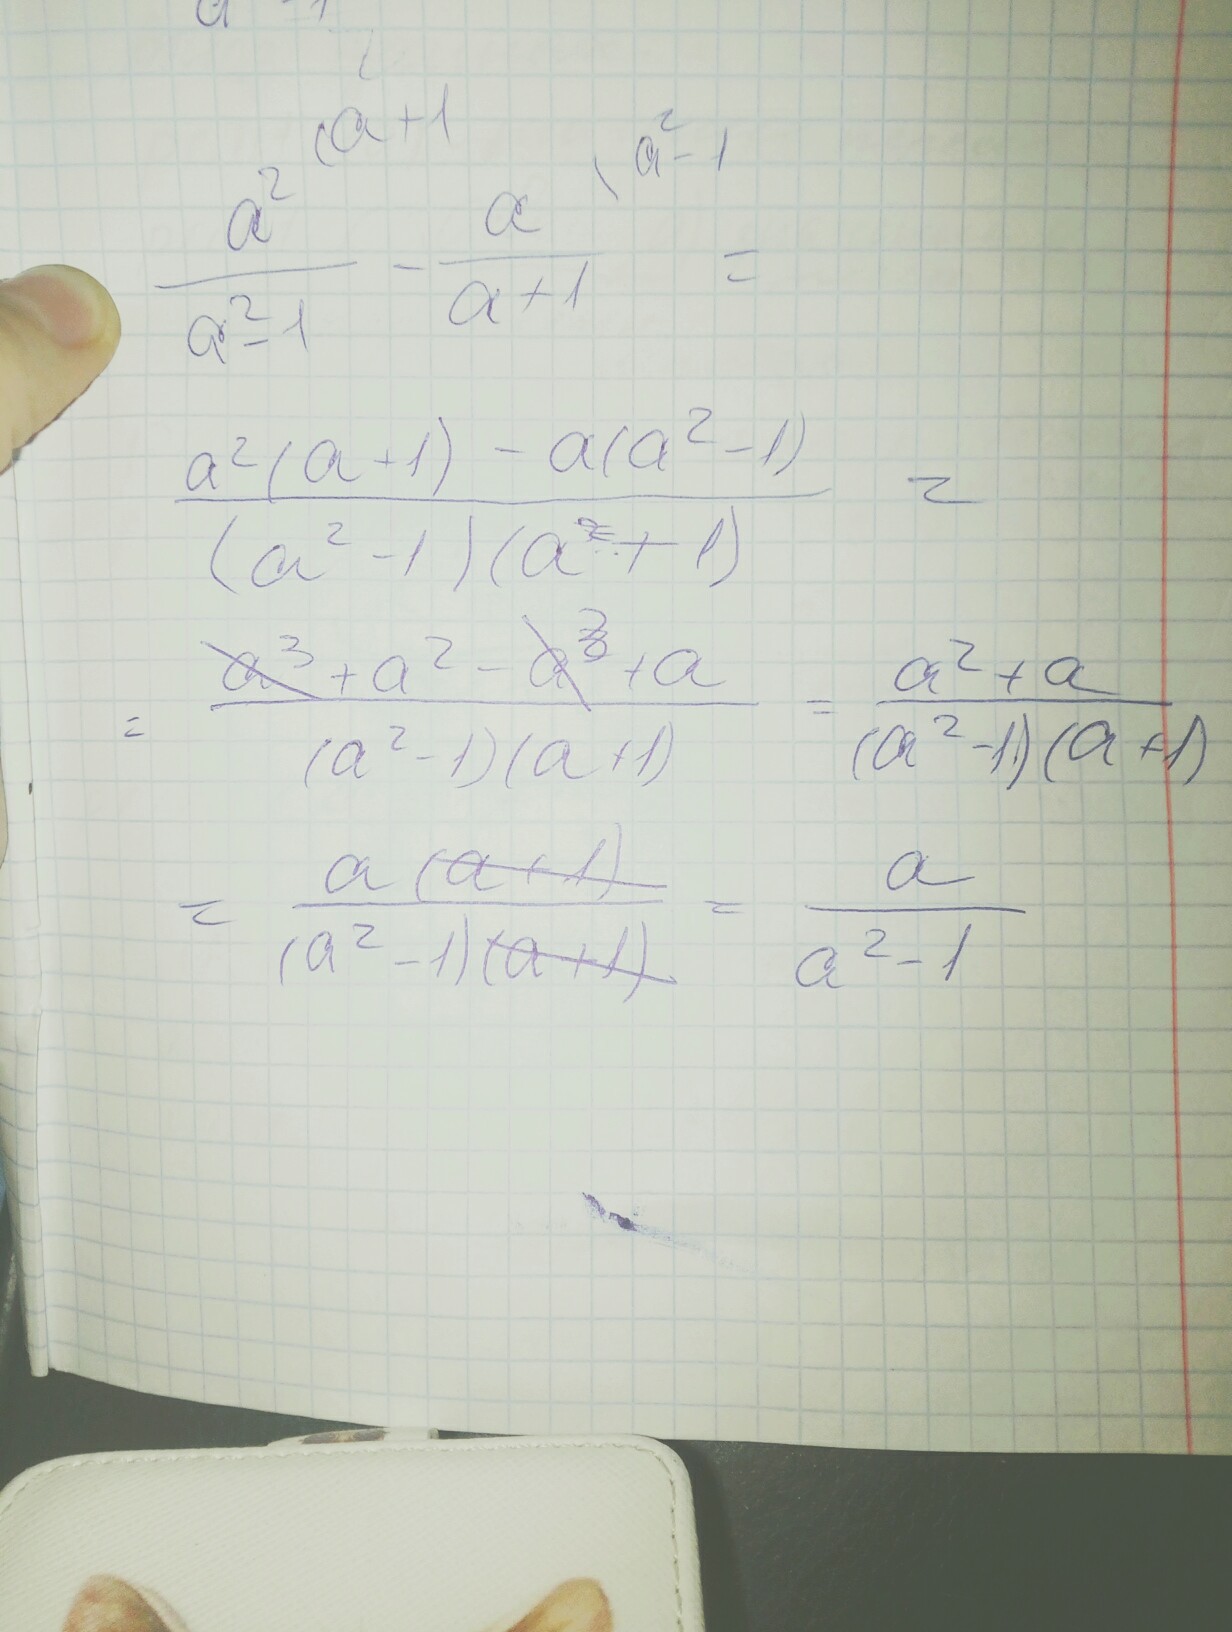 (a+1 (a²-1
a²/(a²-1) - a/(a+1) =
(a²(a+1) - a(a²-1))/((a²-1)(a+1)) =
= (a³+a²-a³+a)/((a²-1)(a+1)) = (a²+a)/((a²-1)(a+1))
= (a(a+1))/((a²-1)(a+1)) = a/(a²-1)